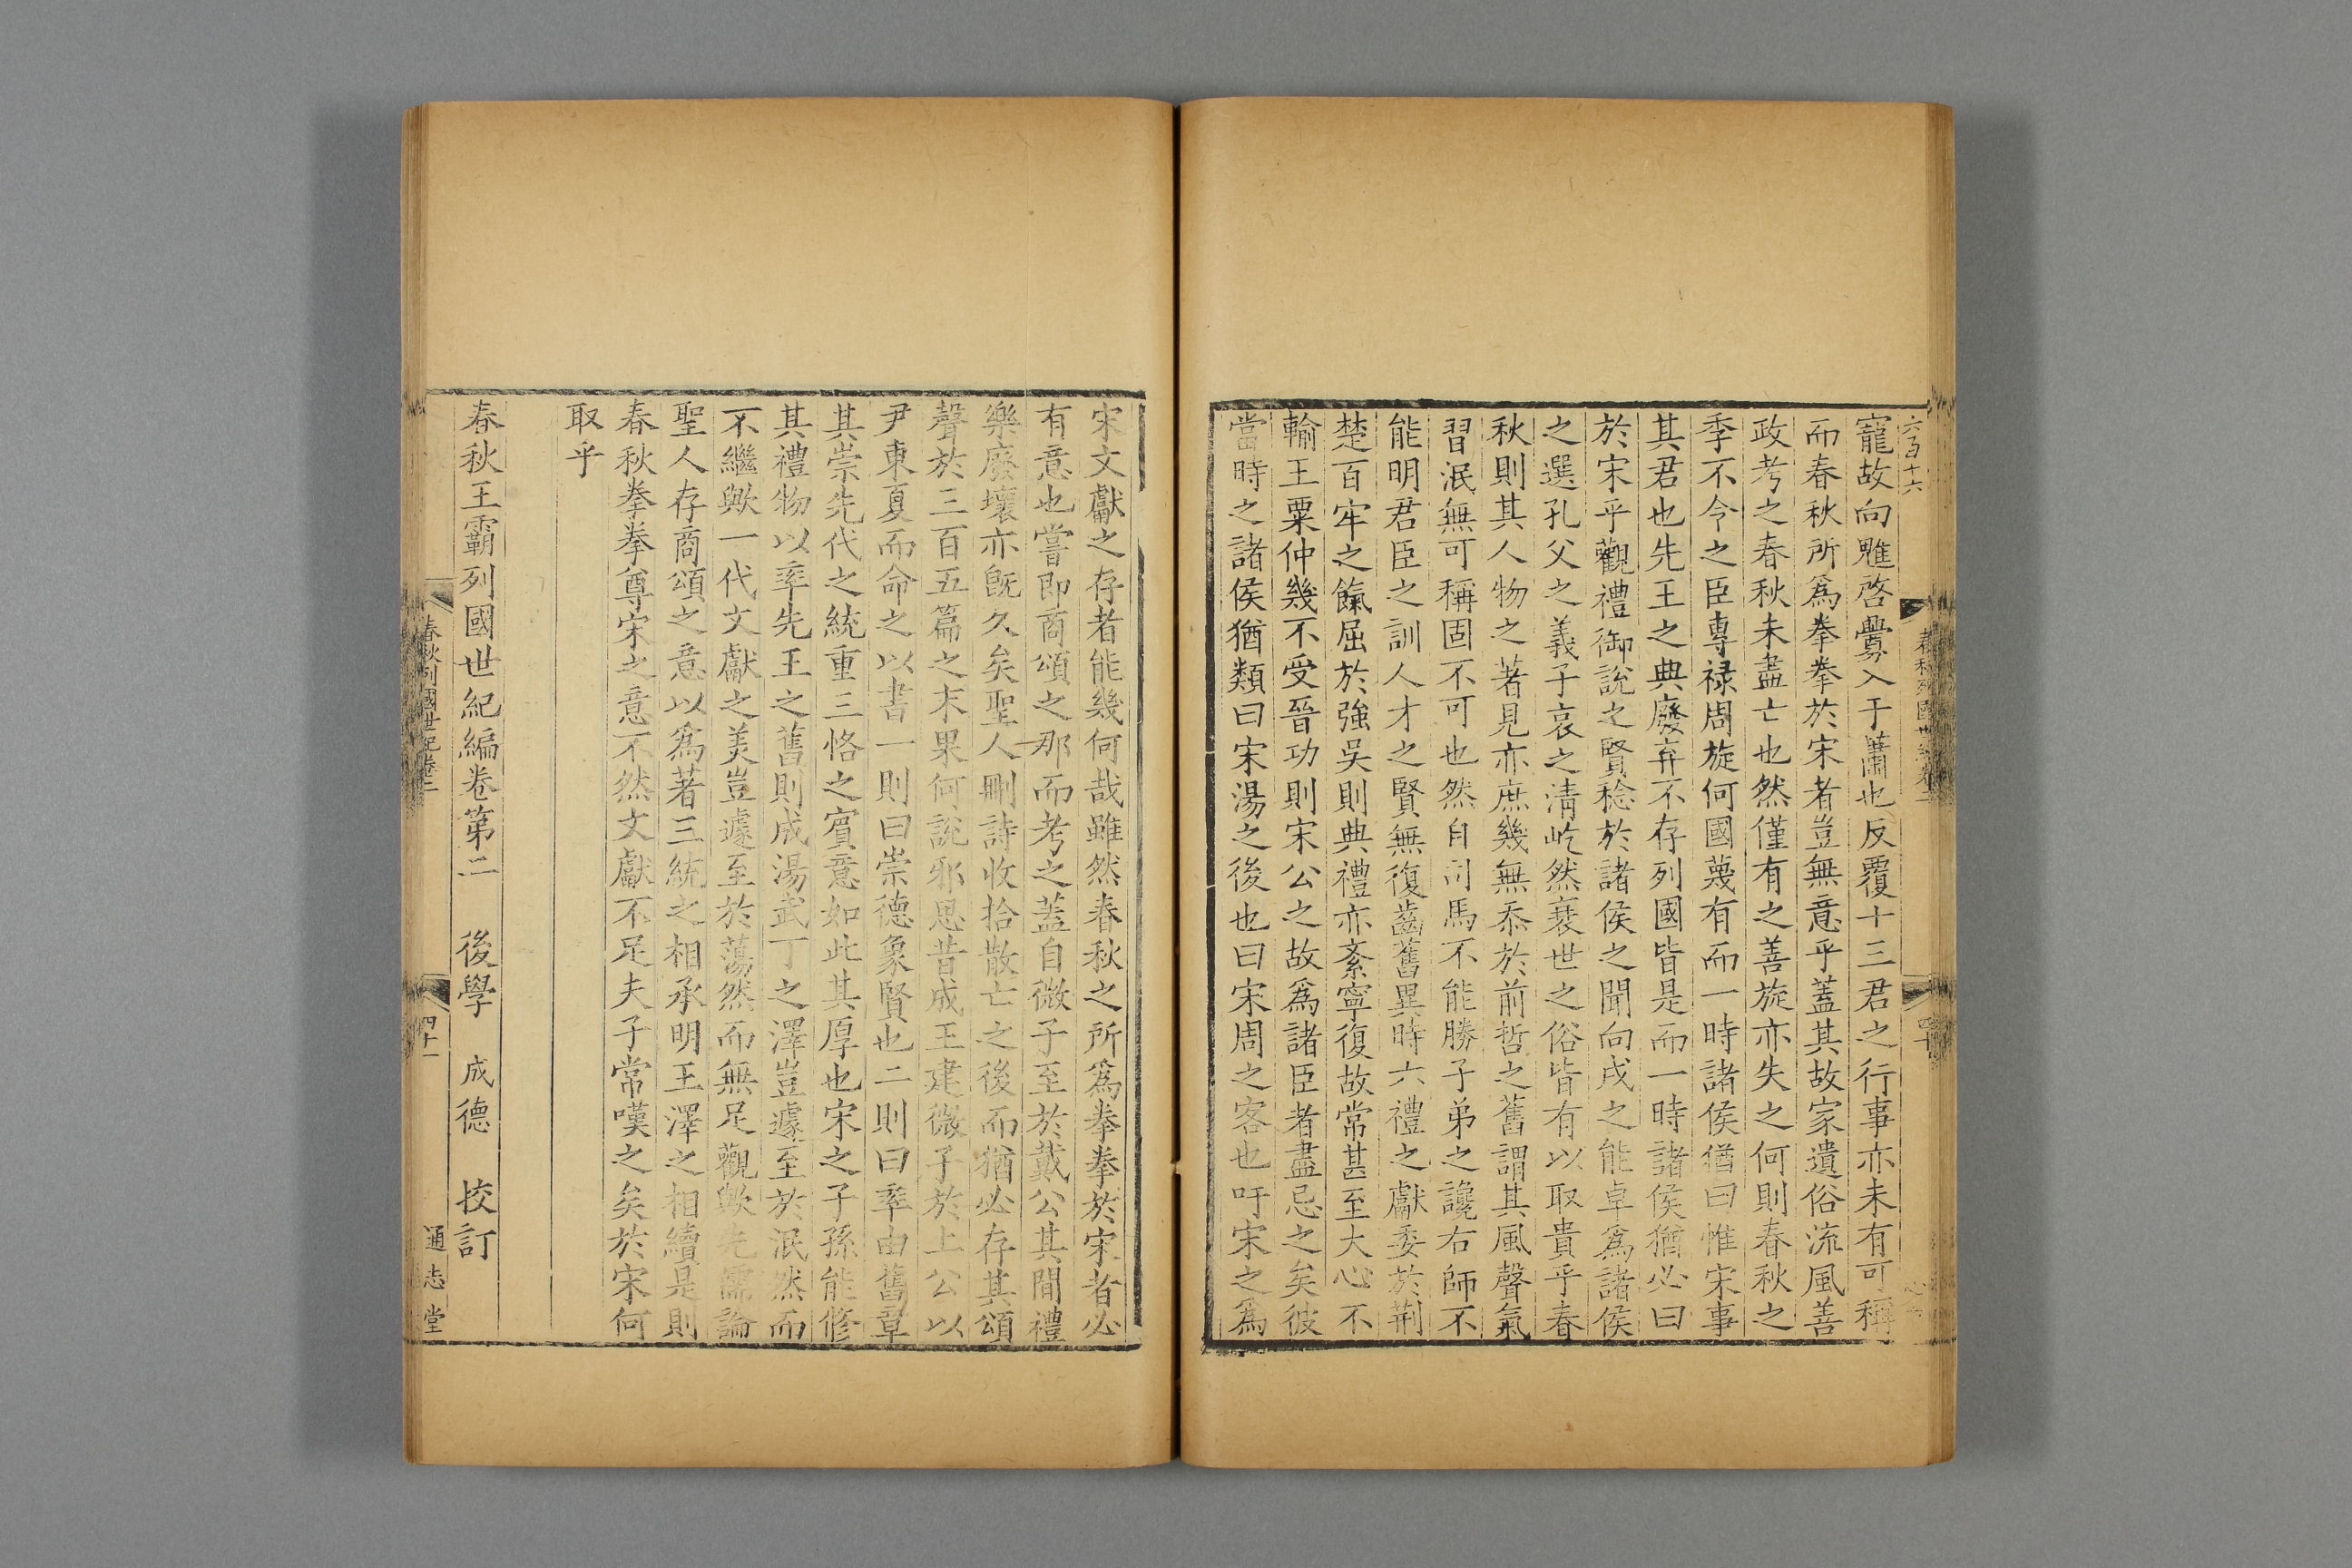 六百十六
寵故向魋啓釁入于蕭也反覆十三君之行事亦未有可稱
而春秋所爲拳拳於宋者豈無意乎蓋其故家遺俗流風善
政考之春秋未盡亡也然僅有之善旋亦失之何則春秋之
季不令之臣專禄周旋何國蔑有而一時諸侯猶曰惟宋事
其君也先王之典廢弃不存列國皆是而一時諸侯猶必曰
於宋乎觀禮御說之賢稔於諸侯之聞向戌之能卓爲諸侯
之選孔父之義子哀之清屹然衰世之俗皆有以取貴乎春
秋則其人物之著見亦庶幾無忝於前哲之舊謂其風聲氣
習泯無可稱固不可也然自司馬不能勝子弟之讒右師不
能明君臣之訓人才之賢無復齒舊異時六禮之獻委於荆
楚百牢之餼屈於強吳則典禮亦紊寧復故常甚至大心不
輸王粟仲幾不受晉功則宋公之故爲諸臣者盡忌之矣彼
當時之諸侯猶類曰宋湯之後也曰宋周之客也吁宋之爲
宋文獻之存者能幾何哉雖然春秋之所爲拳拳於宋者必
有意也嘗即商頌之那而考之蓋自微子至於戴公其間禮
樂廢壞亦旣久矣聖人刪詩收拾散亡之後而猶必存其頌
聲於三百五篇之末果何說邪思昔成王建微子於上公以
尹東夏而命之以書一則曰崇德象賢也二則曰率由舊章
其崇先代之統重三恪之賓意如此其厚也宋之子孫能修
其禮物以率先王之舊則成湯武丁之澤豈遽至於泯然而
不繼歟一代文獻之美豈遽至於蕩然而無足觀歟先儒論
聖人存商頌之意以爲著三統之相承明王澤之相續是則
春秋拳拳尊宋之意不然文獻不足夫子常嘆之矣於宋何
取乎
春秋王霸列國世紀編卷第二　後學　成德　挍訂
春秋列國世紀卷二　四十一　通志堂